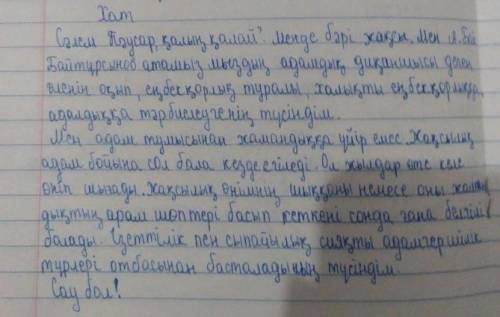 Хат
Сәлем Тәусар, қалың қалай? Менде бәрі жақсы. Мен А. Бай
Байтұрсынов атамыз мыздың адамдық диқаншысы деген
өленін оқып, еңбесқорлық туралы, халықты еңбесқорлыққа,
адалдыққа тәрбиелеуденің түсіндім.
Мен адам тумысынан жамандыққа үйір емес. Жақсылық
адам бойына сол бала кезде егіледі. Ол жылдар өте келе
өніп шығады. Жақсылық өнімнің шыққаны немесе оны жаман
дықтың арам шөптері басып кеткені сонда ғана белгілі
балады. Ізеттілік пен сыпайылық сияқты адамгершілік
түрлері отбасынан басталадының түсіндім.
Сау бол!